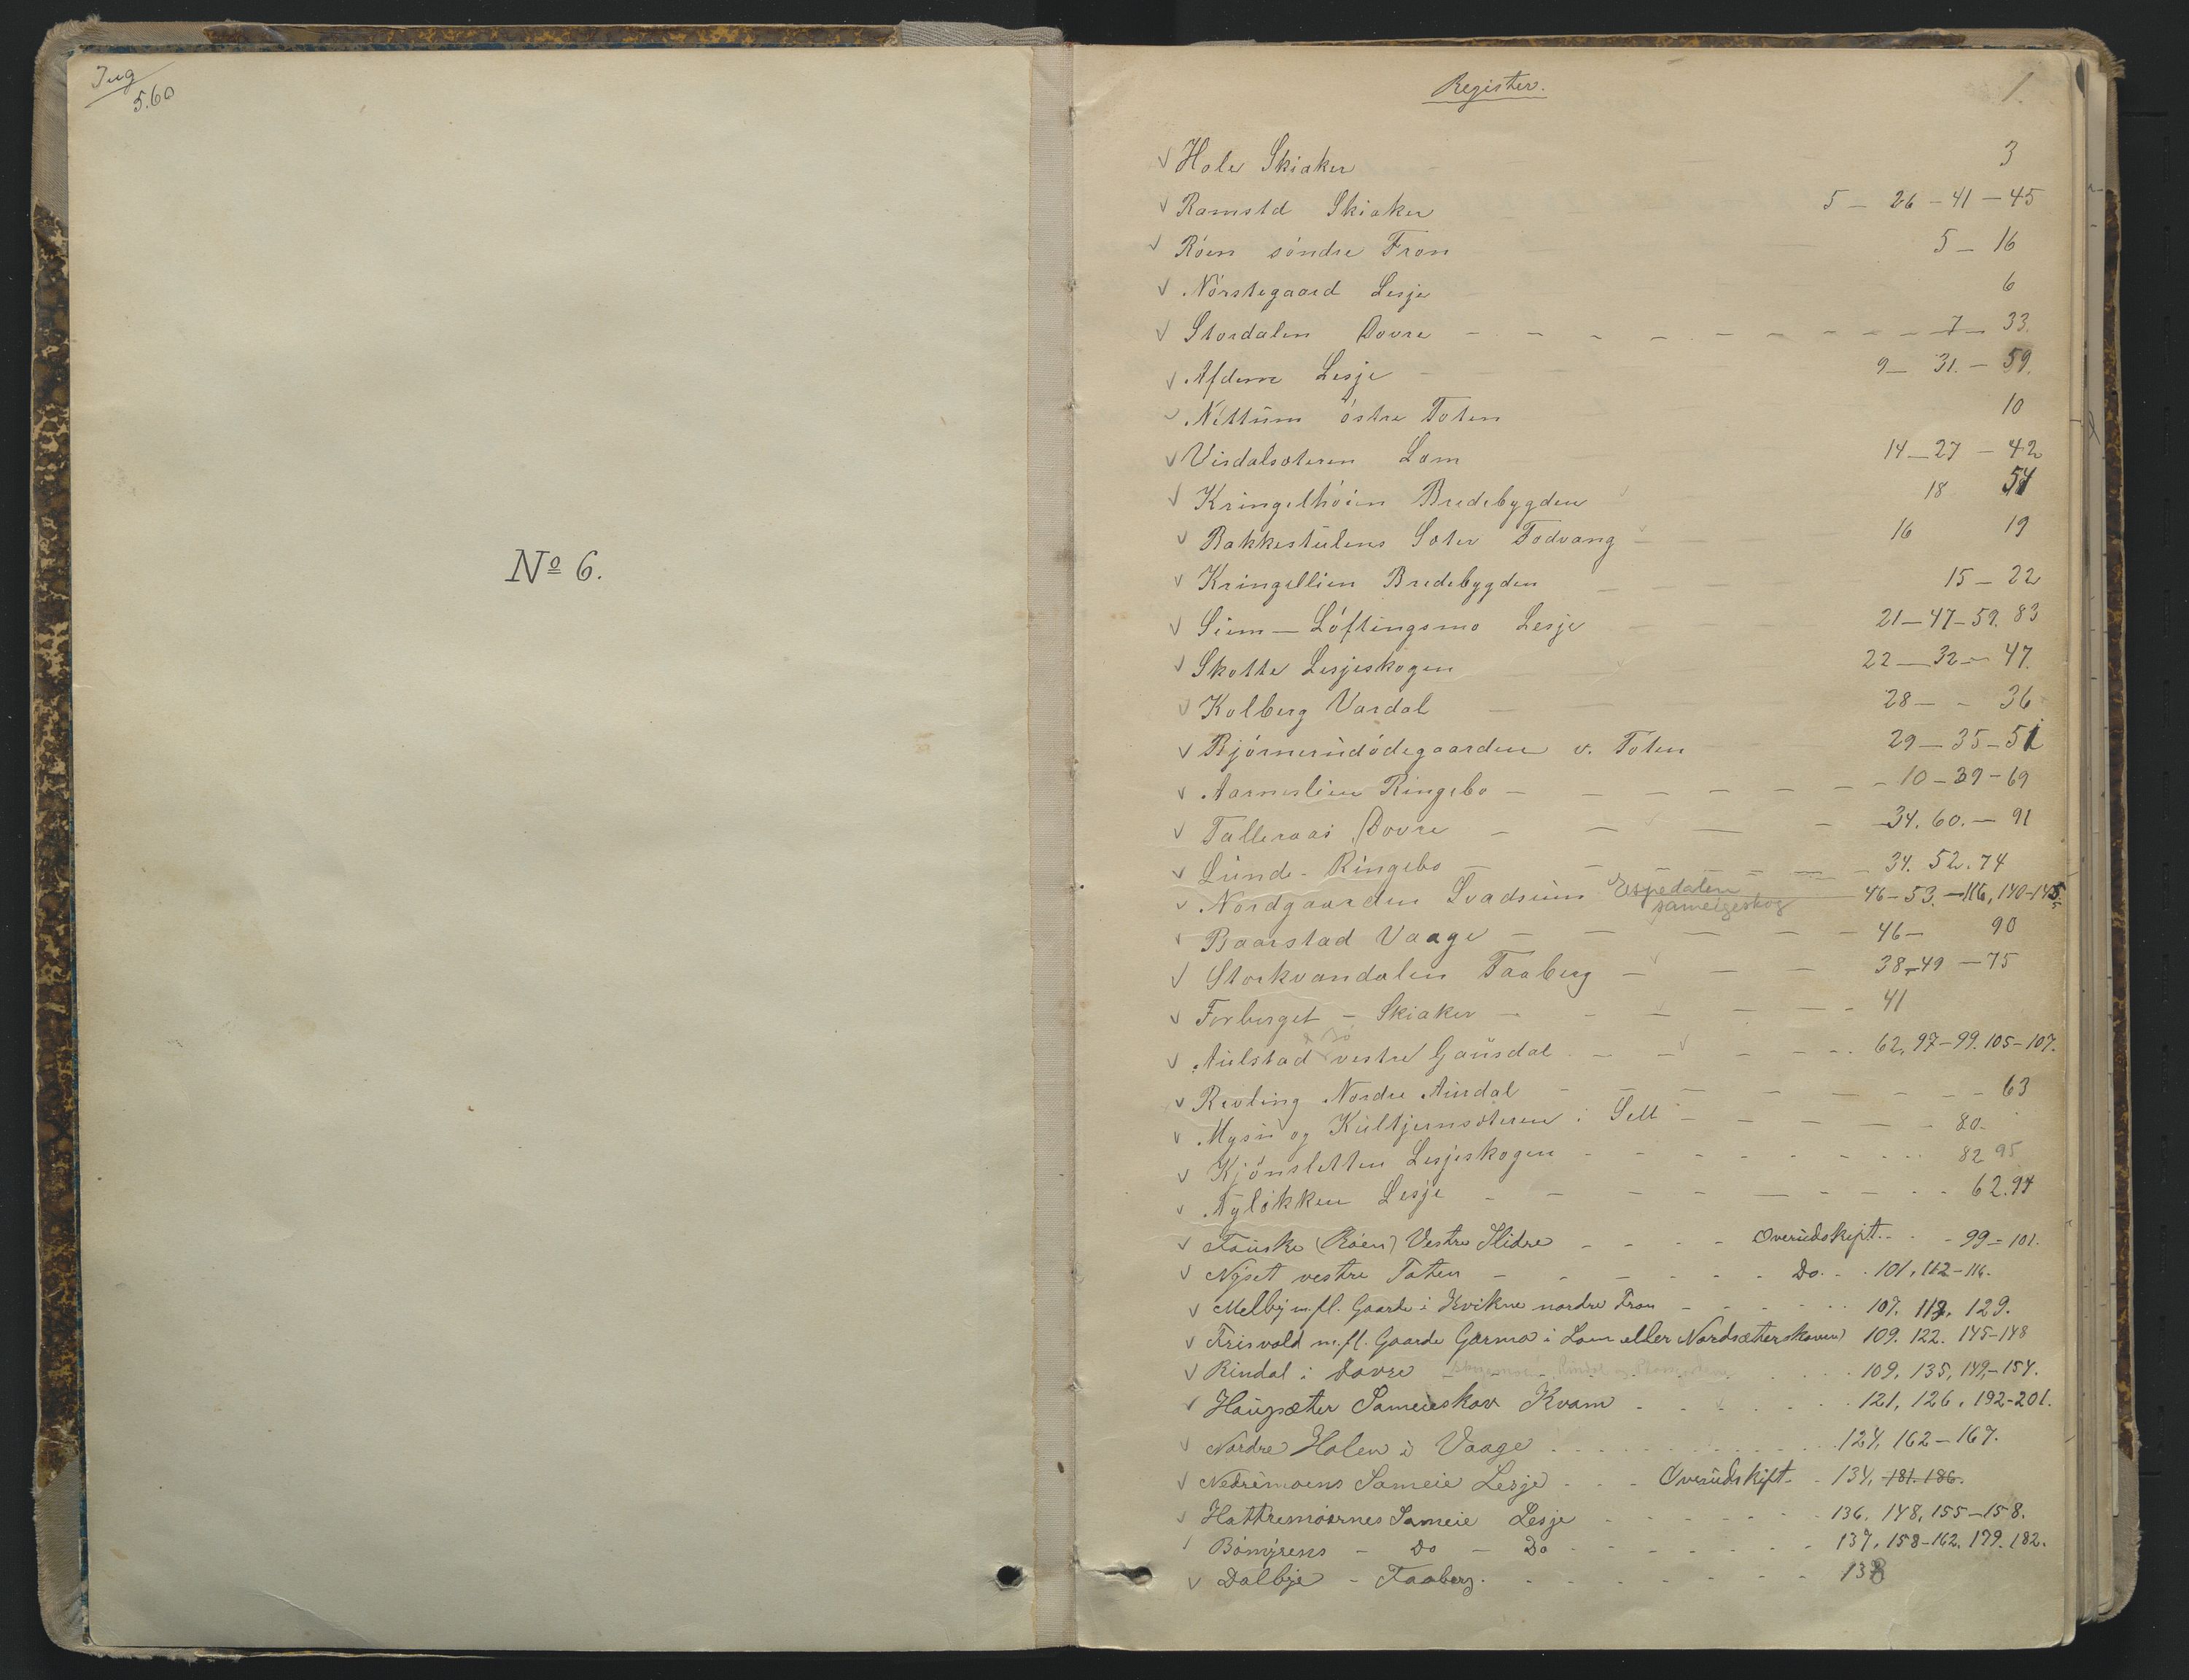 Jug
5.60
No 6.
Register.
1.
√ Hole Skiaker 3
√ Ramstd Skiaker 5 — 26 — 41 — 45
√ Röen söndre Fron 5 — 16
√ Nörstegaard Lesje 6
√ Stordalen Dovre — 7 — 33.
√ Afdem Lesje 9 — 31. — 59.
√ Nettum östre Toten 10
√ Visdalsæteren Lom 14 — 27 — 42
√ Kringelhöien Bredebygden 18 54
√ Bakkestulens Sæter Fodvang 16 19
√ Kringellien Bredebygden 15 — 22
√ Siem — Löftingsmo Lesje 21 — 47 — 59. 83
√ Skotte Lesjeskogen 22 — 32 — 47.
√ Kolberg Vardal 28 — - 36
√ Björnerudödegaarden v. Toten 29 — 35 — 51
√ Aarneslien Ringebo — 10 — 39 — 69
√ Talleraas Dovre — 34. 60. — 91
√ Lunde - Ringebo — 34. 52. 74
√ Nordgaarden Svadsum Espedalen 46 — 53. — 116, 140-145.
sameigeskog
√ Baarstad Vaage — 46 — 90
√ Storkvandalen Faaberg — 38 — 49 — 75
√ Forberget — Skiaker — 41
& Bö
√ Aulstad vestre Gausdal — 62, 97 — 99. 105 — 107.
√ Revling Nordre Aurdal — 63
√ Mysu og Kultjernsæteren i Sell — 80.
√ Kjönsletten Lesjeskogen — 82 95
√ Nyløkken Lesje — 62. 94
√ Fauske (Röen) Vestre Slidre — Overudskift. — 99 — 101.
√ Nyset vestre Toten — Do. 101, 112 — 116.
√ Melby m.fl. Gaarde i Kvikne nordre Fron — 107, 118, 129.
√ Frisvold m.fl. Gaarde Garmo i Lom eller Nordsæterskoven) 109. 122. 145-148
√ Rindal i Dovre 109, 135, 149, — 154.
√ Haugsæter Sameieskov Kvam 121, 126, 192-201.
√ Nordre Holen i Vaage 124, 162 — 167.
√ Nedremoens Sameie Lesje — Overudskift. 134, 181-186.
√ Hattremoernes Sameie Lesje 136, 148, 155 — 158.
√ Bömyrens — Do — Do 137, 158-162, 179. 182.
√ Dalbye — Faaberg. 138